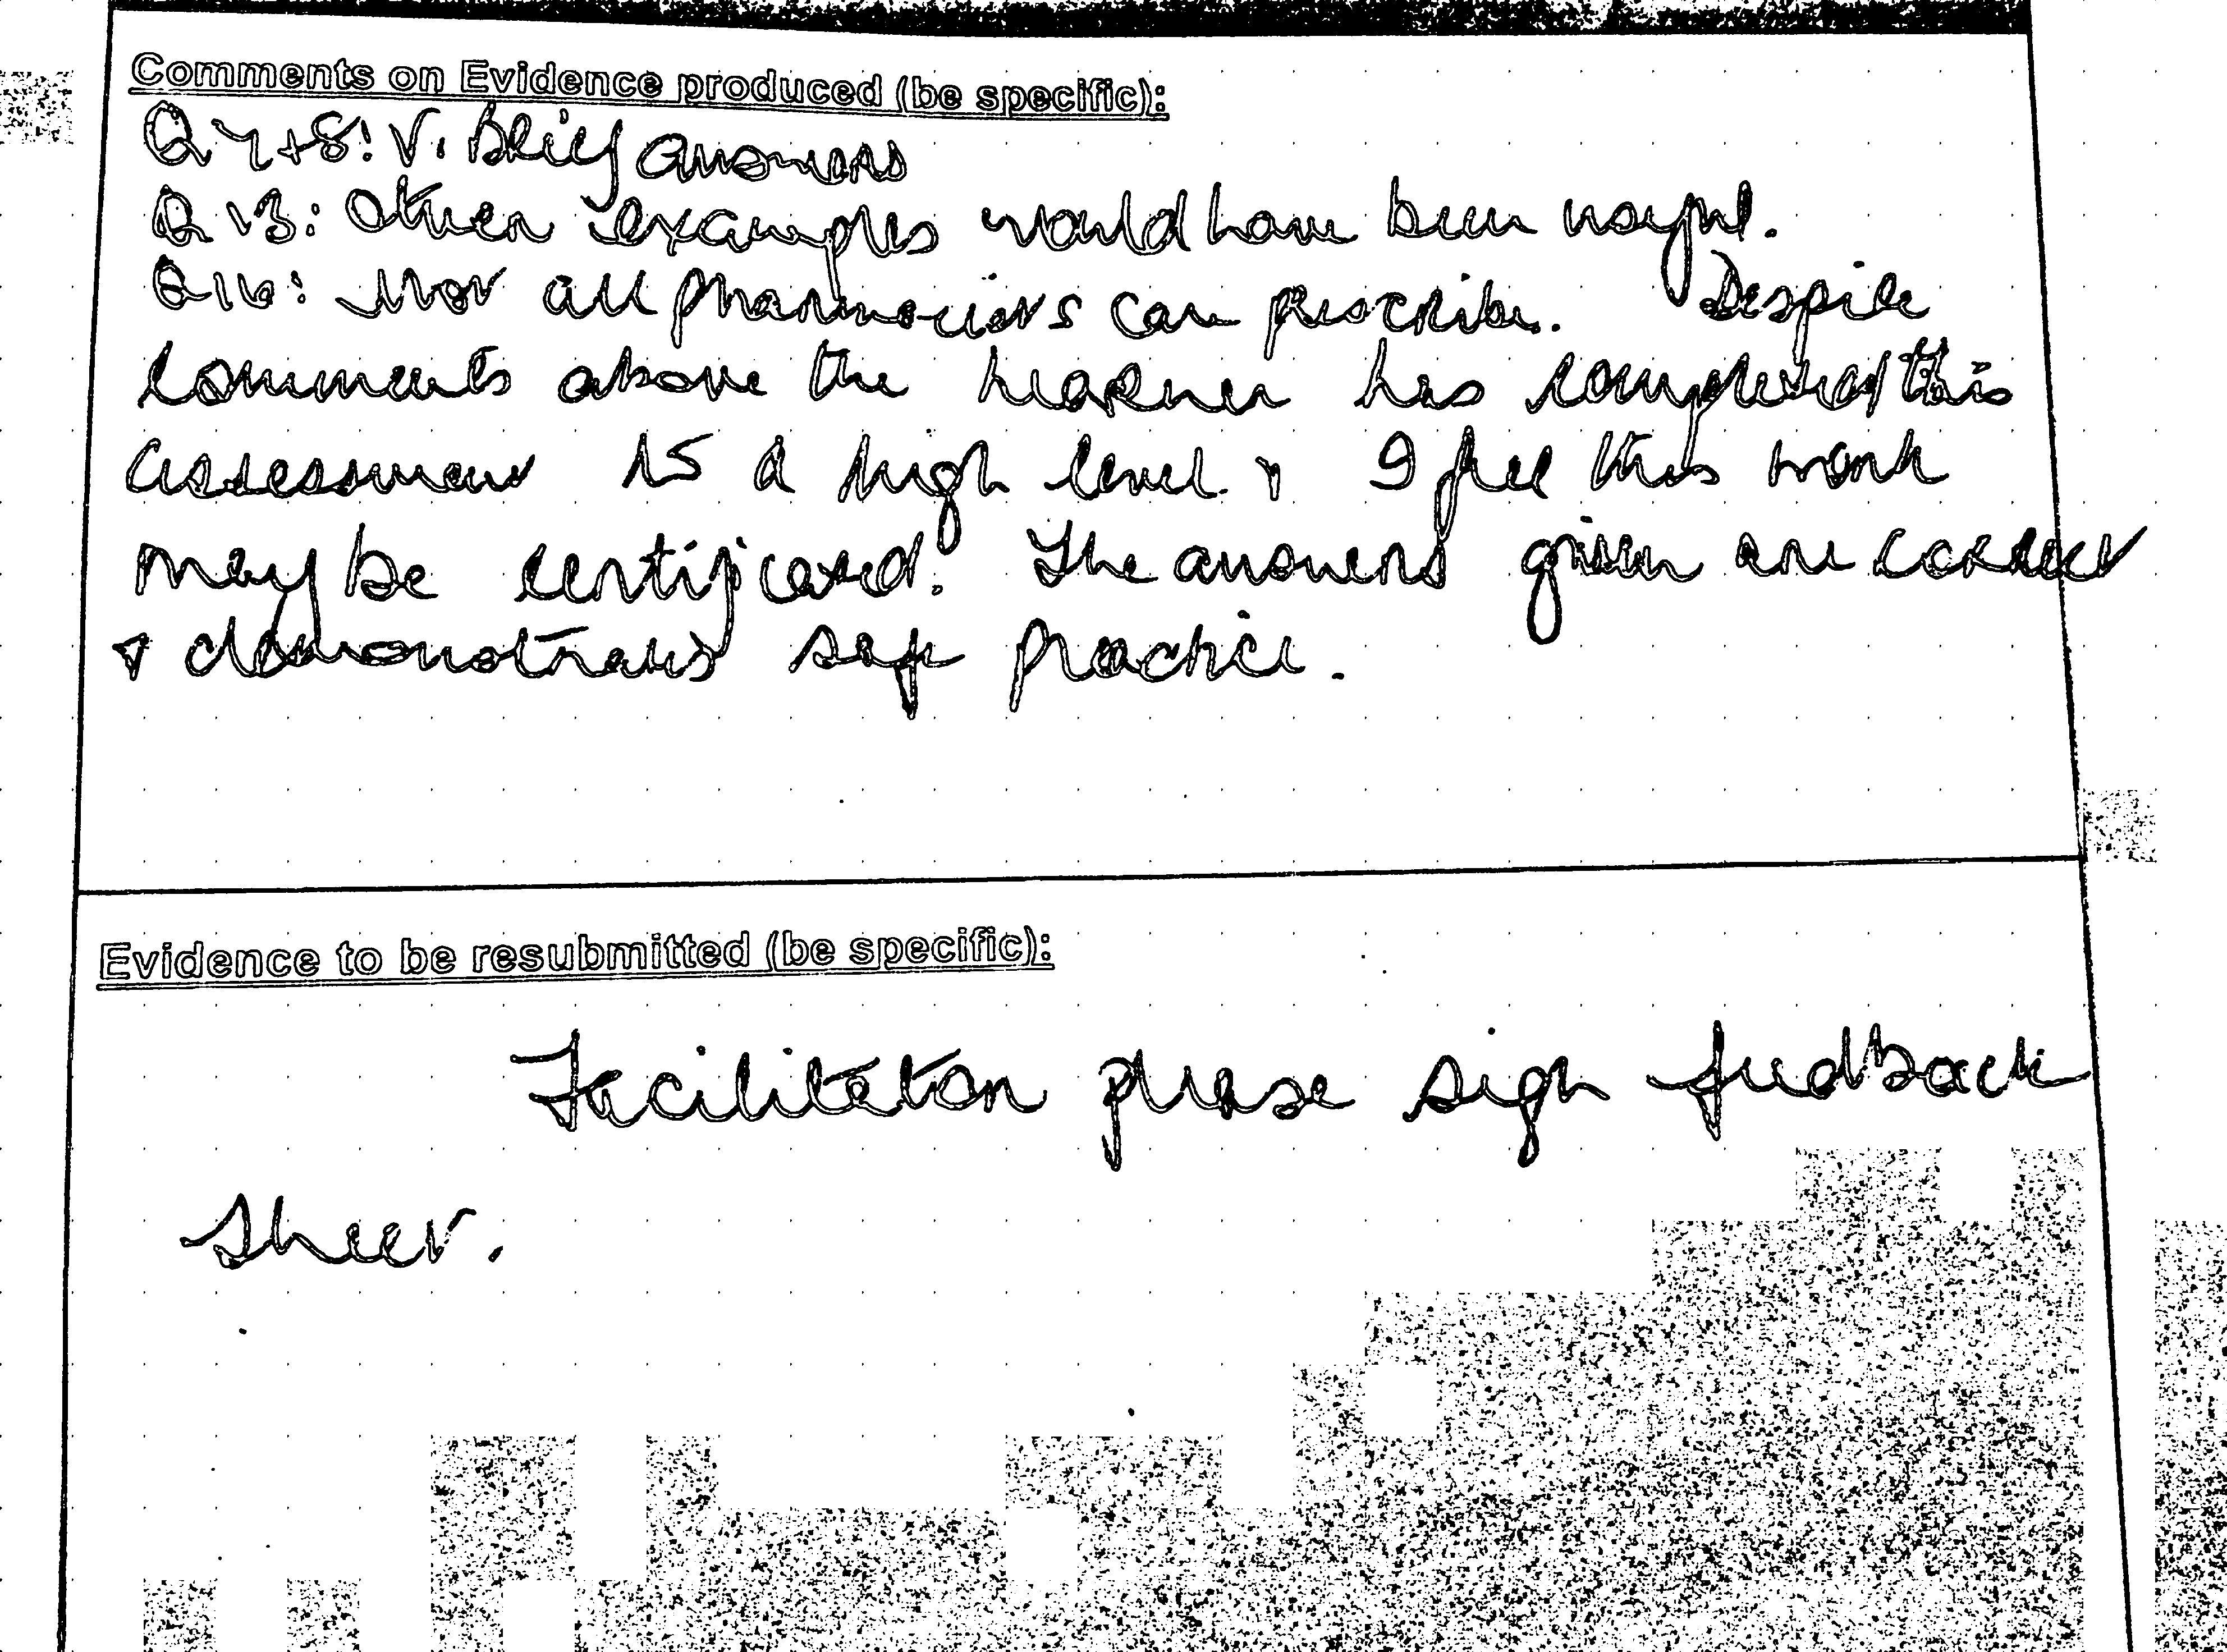 Comments on Evidence produced (be specific):
Q 7+8: V. Brief answers
Q 13: Other examples would have been helpful.
Q16: Not all pharmacists can prescribe. Despite
comments above the learner has completed this
assessment to a high level & I feel this work
may be certificated. The answers given are correct
& demonstrates safe practice.
Evidence to be resubmitted (be specific):
Facilitator please sign feedback
sheet.